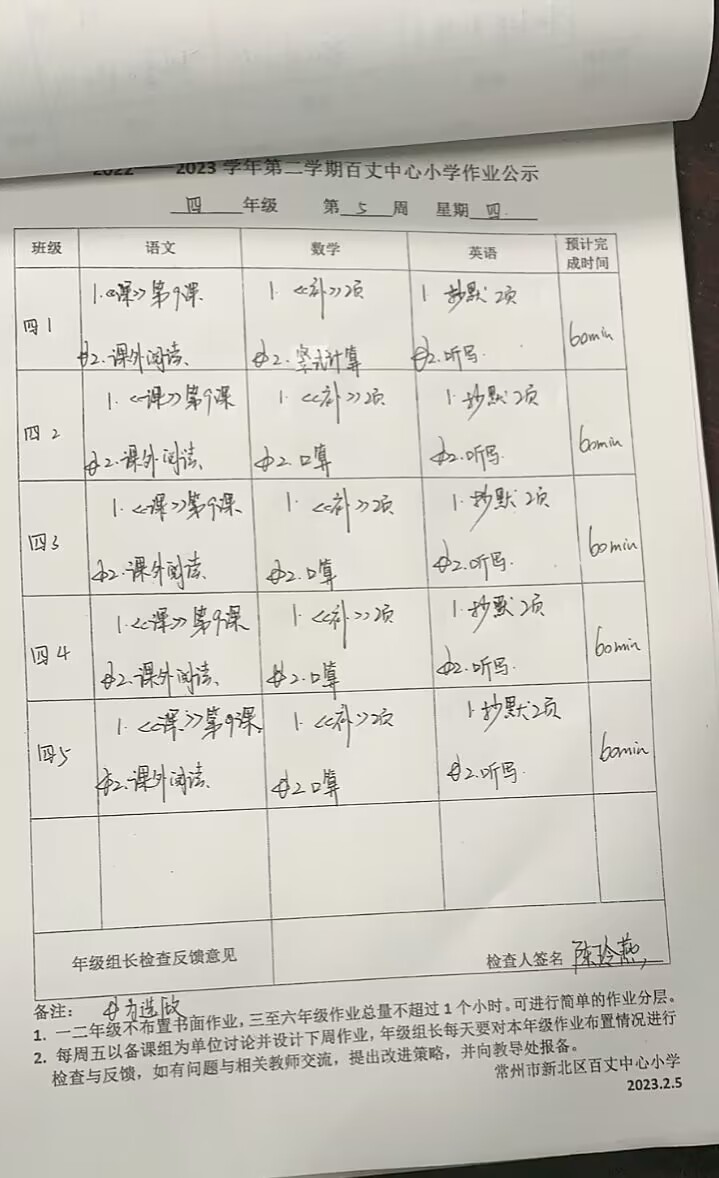 2022——2023学年第二学期百丈中心小学作业公示
四 年级 第 5 周 星期 四
班级 语文 数学 英语 预计完成时间
四1 1.《课》第9课 1.《补》2页 1 抄默2页 60min
2.课外阅读 2.竖式计算 2.听写
四2 1.《课》第9课 1.《补》2页 1.抄默2页 60min
2.课外阅读 2.口算 2.听写
四3 1.《课》第9课 1.《补》2页 1.抄默2页 60min
2.课外阅读 2.口算 2.听写
四4 1.《课》第9课 1.《补》2页 1.抄默2页 60min
2.课外阅读 2.口算 2.听写
四5 1.《课》第9课 1.《补》2页 1.抄默2页 60min
2.课外阅读 2.口算 2.听写
年级组长检查反馈意见 检查人签名 陈玲燕
备注: 为选做
1. 一二年级不布置书面作业,三至六年级作业总量不超过1个小时。可进行简单的作业分层。
2. 每周五以备课组为单位讨论并设计下周作业,年级组长每天要对本年级作业布置情况进行
检查与反馈,如有问题与相关教师交流,提出改进策略,并向教导处报备。
常州市新北区百丈中心小学
2023.2.5